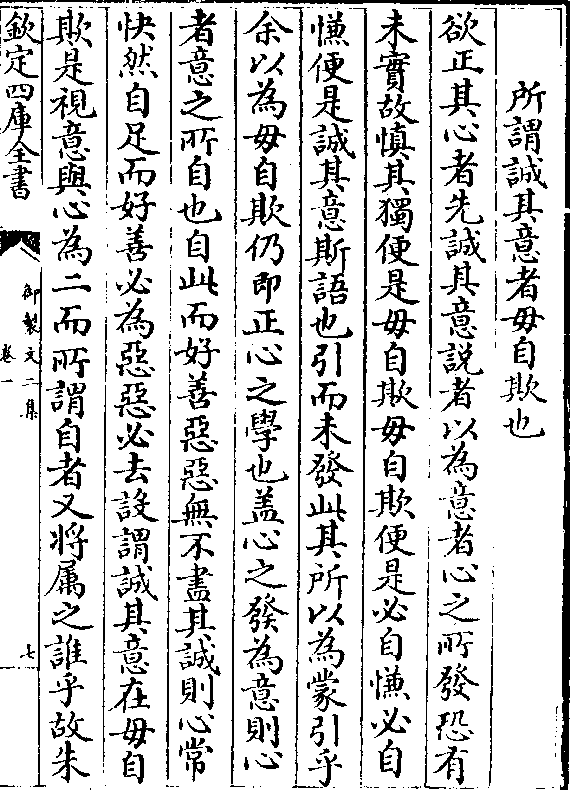 所謂誠其意者毋自欺也
欲正其心者先誠其意説者以為意者心之所發恐有
未實故慎其獨便是毋自欺毋自欺便是必自慊必自
慊便是誠其意斯語也引而未發此其所以為蒙引乎
余以為毋自欺仍即正心之學也盖心之發為意則心
者意之所自也自此而好善惡惡無不盡其誠則心常
快然自足而好善必為惡惡必去設謂誠其意在毋自
欺是視意與心為二而所謂自者又将屬之誰乎故朱
欽定四庫全書
御製文二集
卷一
七